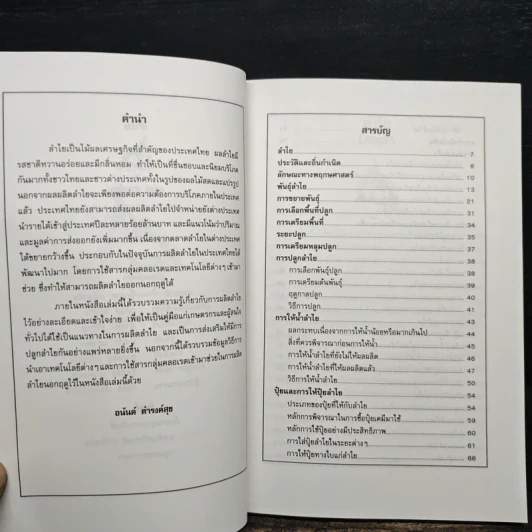 คำนำ
ลำไยเป็นไม้ผลเศรษฐกิจที่สำคัญของประเทศไทย ผลลำไยมี
รสชาติหวานอร่อยและมีกลิ่นหอม ทำให้เป็นที่ชื่นชอบและนิยมบริโภค
กันมากทั้งชาวไทยและชาวต่างประเทศทั้งในรูปของผลไม้สดและแปรรูป
นอกจากผลผลิตลำไยจะเพียงพอต่อความต้องการบริโภคภายในประเทศ
แล้ว ประเทศไทยยังสามารถส่งผลผลิตลำไยไปจำหน่ายยังต่างประเทศ
นำรายได้เข้าสู่ประเทศปีละหลายร้อยล้านบาท และมีแนวโน้มว่าปริมาณ
และมูลค่าการส่งออกยังเพิ่มมากขึ้น เนื่องจากตลาดลำไยในต่างประเทศ
ได้ขยายกว้างขึ้น ประกอบกับในปัจจุบันการผลิตลำไยในประเทศไทยได้
พัฒนาไปมาก โดยการใช้สารกลุ่มคลอเรตและเทคโนโลยีต่างๆ เข้ามา
ช่วย ซึ่งทำให้สามารถผลิตลำไยออกนอกฤดูได้
ภายในหนังสือเล่มนี้ได้รวบรวมความรู้เกี่ยวกับการผลิตลำไย
ไว้อย่างละเอียดและเข้าใจง่าย เพื่อให้เป็นคู่มือแก่เกษตรกรและผู้สนใจ
ทั่วไปได้ใช้เป็นแนวทางในการผลิตลำไย และเป็นการส่งเสริมให้มีการ
ปลูกลำไยกันอย่างแพร่หลายยิ่งขึ้น นอกจากนี้ได้รวบรวมข้อมูลวิธีการ
นำเอาเทคโนโลยีต่างๆ และการใช้สารกลุ่มคลอเรตเข้ามาช่วยในการผลิต
ลำไยนอกฤดูไว้ในหนังสือเล่มนี้ด้วย
อนันต์ ดำรงค์สุข
สารบัญ
ลำไย 7
ประวัติและถิ่นกำเนิด 8
ลักษณะทางพฤกษศาสตร์ 10
พันธุ์ลำไย 13
การขยายพันธุ์ 21
การเลือกพื้นที่ปลูก 31
การเตรียมพื้นที่ 34
ระยะปลูก 35
การเตรียมหลุมปลูก 37
การปลูกลำไย 38
การเลือกพันธุ์ปลูก 38
การเตรียมต้นพันธุ์ 40
ฤดูกาลปลูก 41
วิธีการปลูก 41
การให้น้ำลำไย 43
ผลกระทบเนื่องจากการให้น้ำน้อยหรือมากเกินไป 44
สิ่งที่ควรพิจารณาก่อนการให้น้ำ 44
การให้น้ำลำไยที่ยังไม่ให้ผลผลิต 46
การให้น้ำลำไยที่ให้ผลผลิตแล้ว 47
วิธีการให้น้ำลำไย 51
ปุ๋ยและการให้ปุ๋ยลำไย 54
ประเภทของปุ๋ยที่ให้กับลำไย 54
หลักการพิจารณาในการซื้อปุ๋ยเคมีมาใช้ 59
หลักการใช้ปุ๋ยอย่างมีประสิทธิภาพ 60
การใส่ปุ๋ยลำไยในระยะต่างๆ 61
การให้ปุ๋ยทางใบแก่ลำไย 66